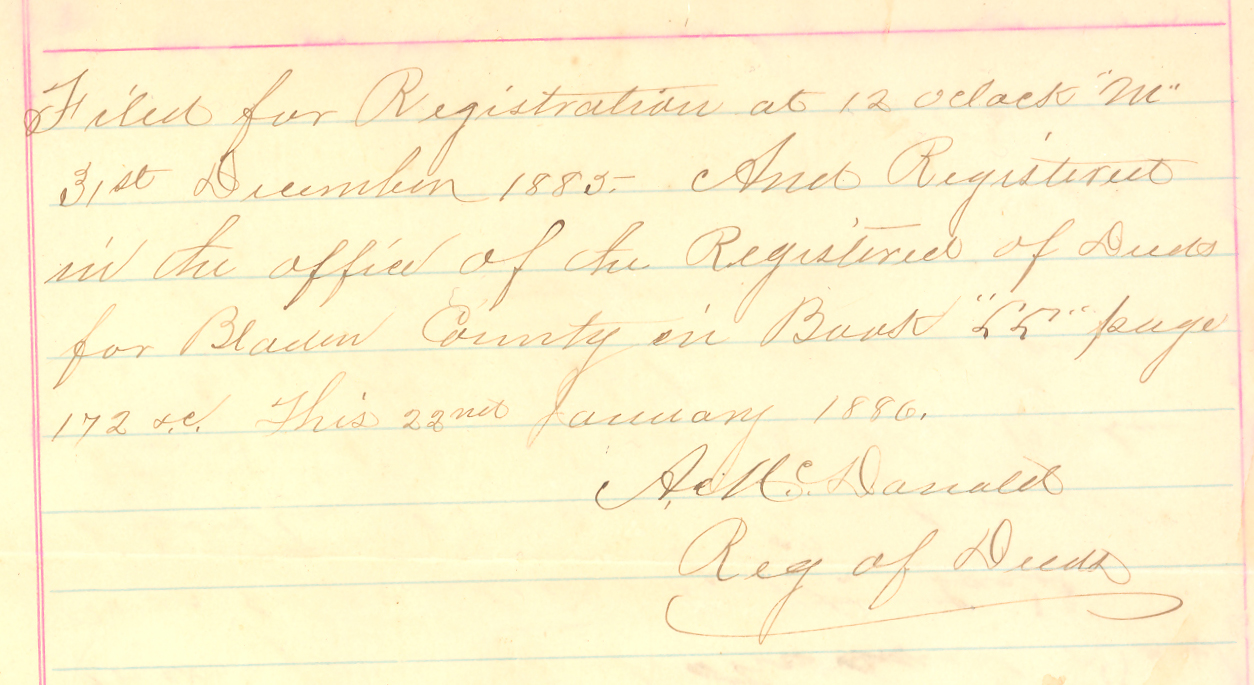 Filed for Registration at 12 oclock "M"
31st December 1885. And Registered
in the office of the Registered of Deeds
for Bladen County in Book "LL" page
172 &c. This 22nd January 1886.
A. McDonald
Reg of Deeds